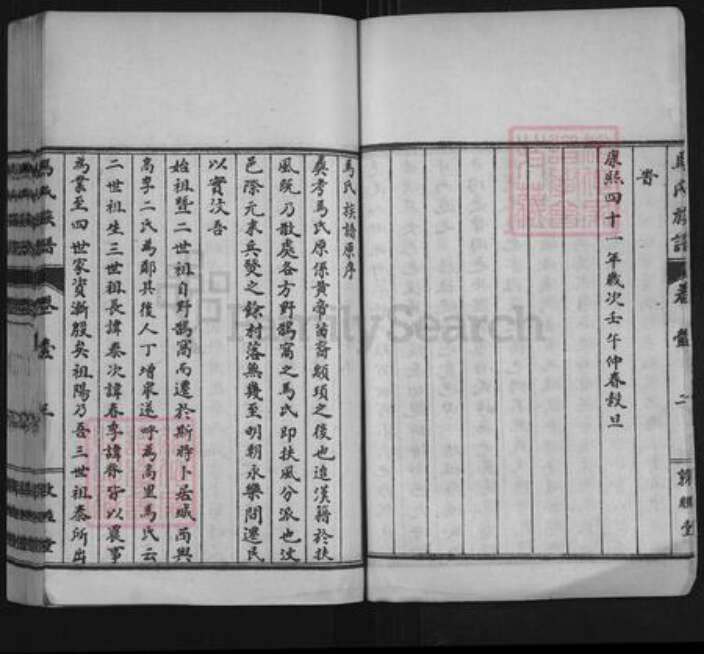 馬氏族譜
卷壹
二
敦睦堂
昝
康熙四十一年歲次壬午仲春穀旦
馬氏族譜原序
奠考馬氏原係黃帝苗裔顓頊之後也迨漢籍於扶
風既乃散處各方野鵲窩之馬氏即扶風分派也汶
邑際元末兵燹之餘村落無幾至明朝永樂間遷民
以實汶吾
始祖暨二世祖自野鵲窩而遷於斯時卜居城西與
高李二氏為鄰其後人丁增眾遂呼為高里馬氏云
二世祖生三世祖長諱泰次諱春季諱 字以農事
為業至四世家資漸殷矣祖陽乃吾三世祖泰所出
馬氏族譜
卷壹
三
敦睦堂
FamilySearch